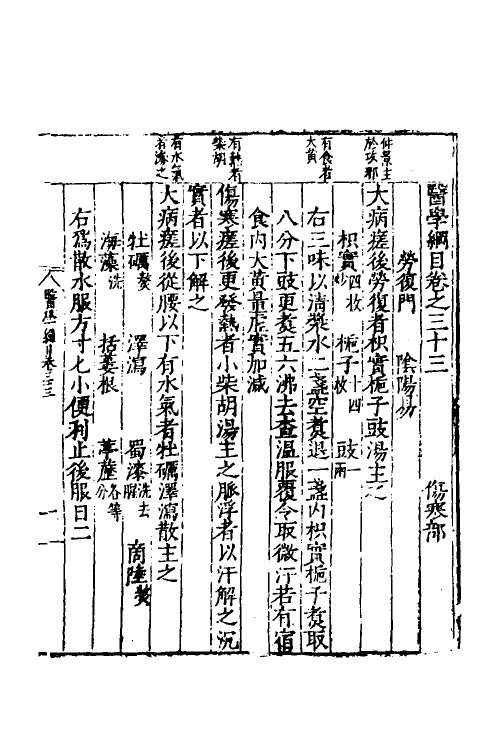 醫學綱目卷之三十三　傷寒部
勞復門　陰陽易
仲景主於攻邪
大病瘥後勞復者枳實梔子豉湯主之
枳實四枚炒　梔子十四枚　豉一兩
有食者大黄
右三味以清漿水二盞空煑退一盞内枳實梔子煑取
八分下豉更煑五六沸去査温服覆令取微汗若有宿
食内大黄量虚實加減
有熱者柴胡
傷寒瘥後更發熱者小柴胡湯主之脈浮者以汗解之沉
實者以下解之
有水氣者滲之
大病瘥後從腰以下有水氣者牡礪澤瀉散主之
牡礪熬　澤瀉　蜀漆洗去腥　商陸熬
海藻洗　括蔞根　葶藶各等分
右為散水服方寸匕小便利止後服日二
醫學綱目卷三三　一